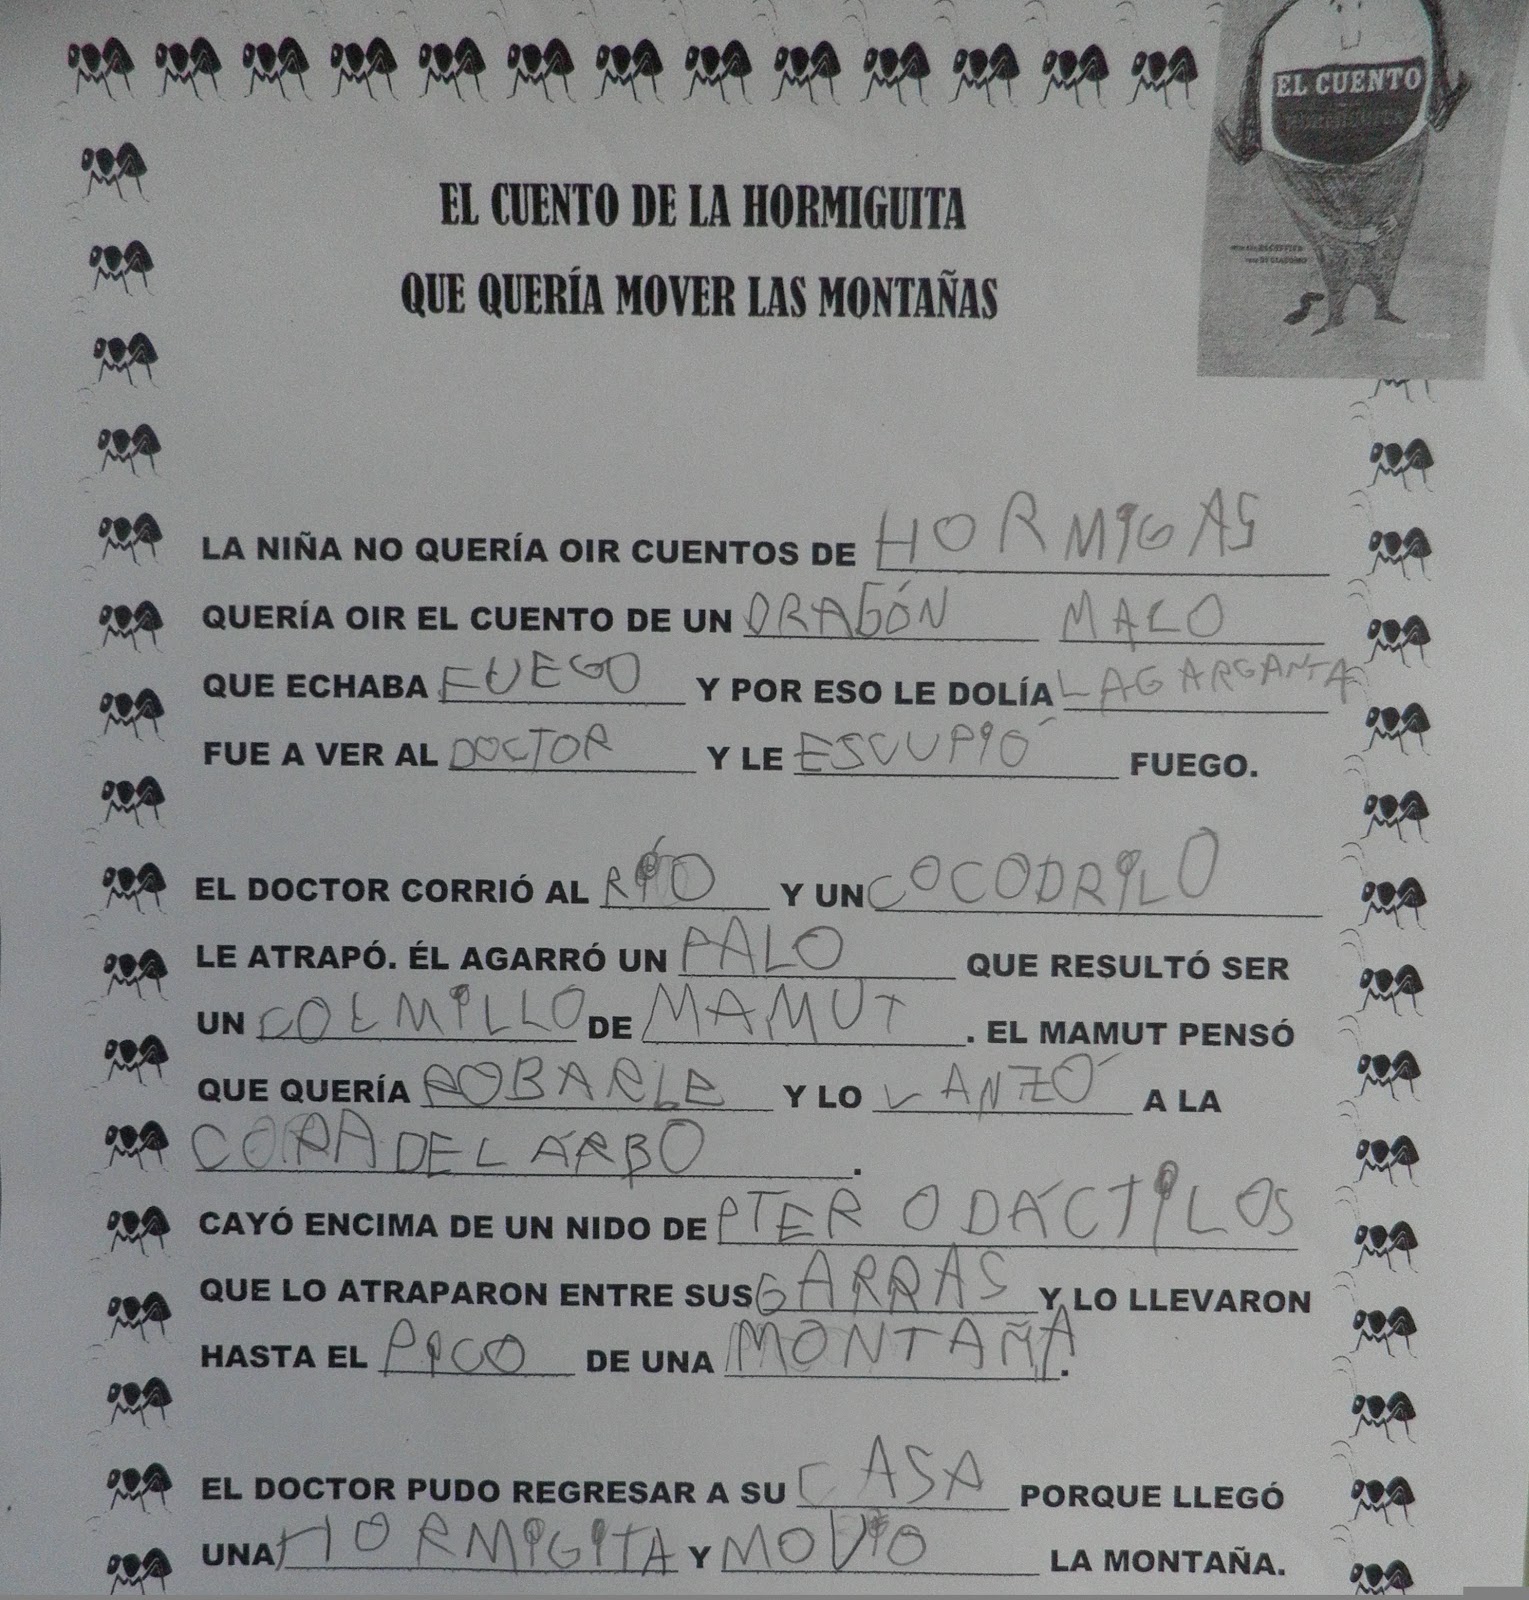 EL CUENTO
EL CUENTO DE LA HORMIGUITA
QUE QUERÍA MOVER LAS MONTAÑAS
LA NIÑA NO QUERÍA OIR CUENTOS DE HORMIGAS
QUERÍA OIR EL CUENTO DE UN DRAGÓN MALO
QUE ECHABA FUEGO Y POR ESO LE DOLÍA LAGARGANTA
FUE A VER AL DOCTOR Y LE ESCUPIÓ FUEGO.
EL DOCTOR CORRIÓ AL RÍO Y UN COCODRILO
LE ATRAPÓ. ÉL AGARRÓ UN PALO QUE RESULTÓ SER
UN COLMILLO DE MAMUT. EL MAMUT PENSÓ
QUE QUERÍA ROBARLE Y LO LANZÓ A LA
COPA DEL ÁRBO.
CAYÓ ENCIMA DE UN NIDO DE PTERODÁCTILOS
QUE LO ATRAPARON ENTRE SUS GARRAS Y LO LLEVARON
HASTA EL PICO DE UNA MONTAÑA.
EL DOCTOR PUDO REGRESAR A SU CASA PORQUE LLEGÓ
UNA HORMIGITA Y MOVIO LA MONTAÑA.